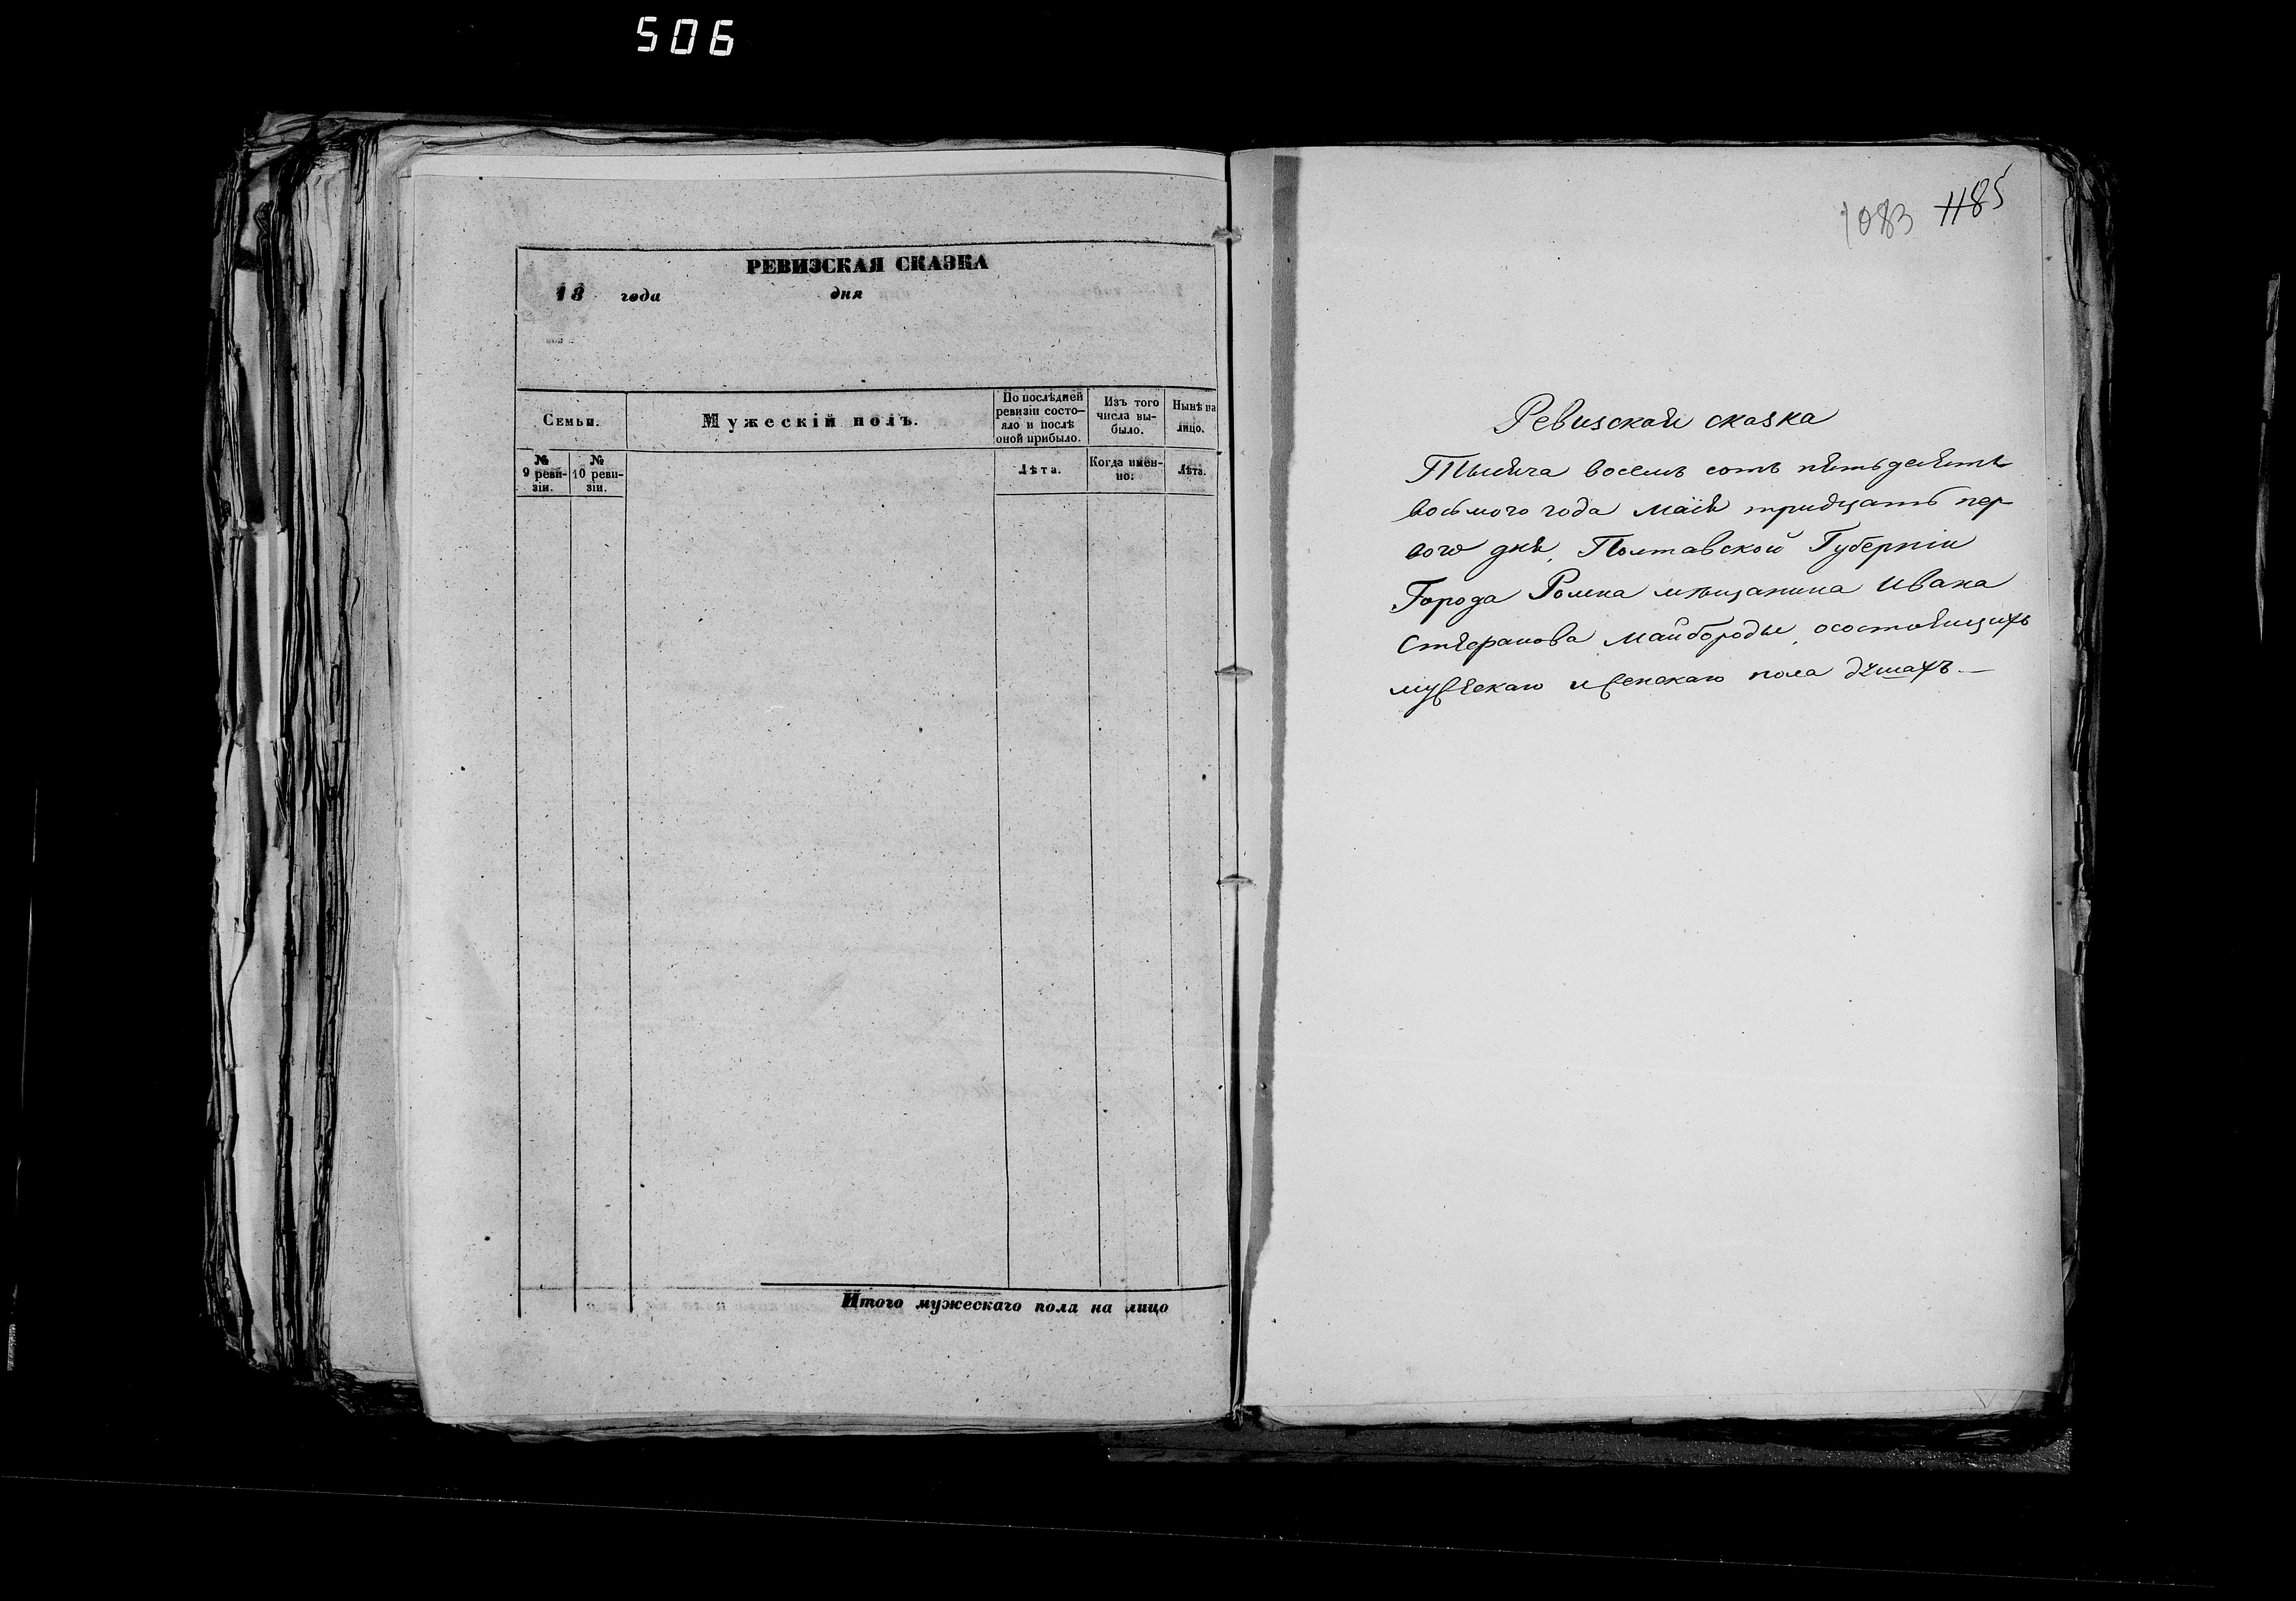 506
РЕВИЗСКАЯ СКАЗКА
18 года дня
Семьи.
Мужескій полъ.
По послѣдней
ревизіи состо-
яло и послѣ
оной прибыло.
Изъ того
числа вы-
было.
Нынѣ на
лицо.
№
9 реви-
зіи.
№
10 реви-
зіи.
Лѣта.
Когда имен-
но.
Лѣта.
Итого мужескаго пола на лицо
1083 1185
Ревизская сказка
Тысяча восемь сотъ пятьдесятъ
восьмого года маія тридцать пер
вого дня, Полтавской Губерніи
Города Ромна мѣщанина Ивана
Стефанова Майбороды, осостоящихъ
мужескаго иженскаго пола душахъ.—